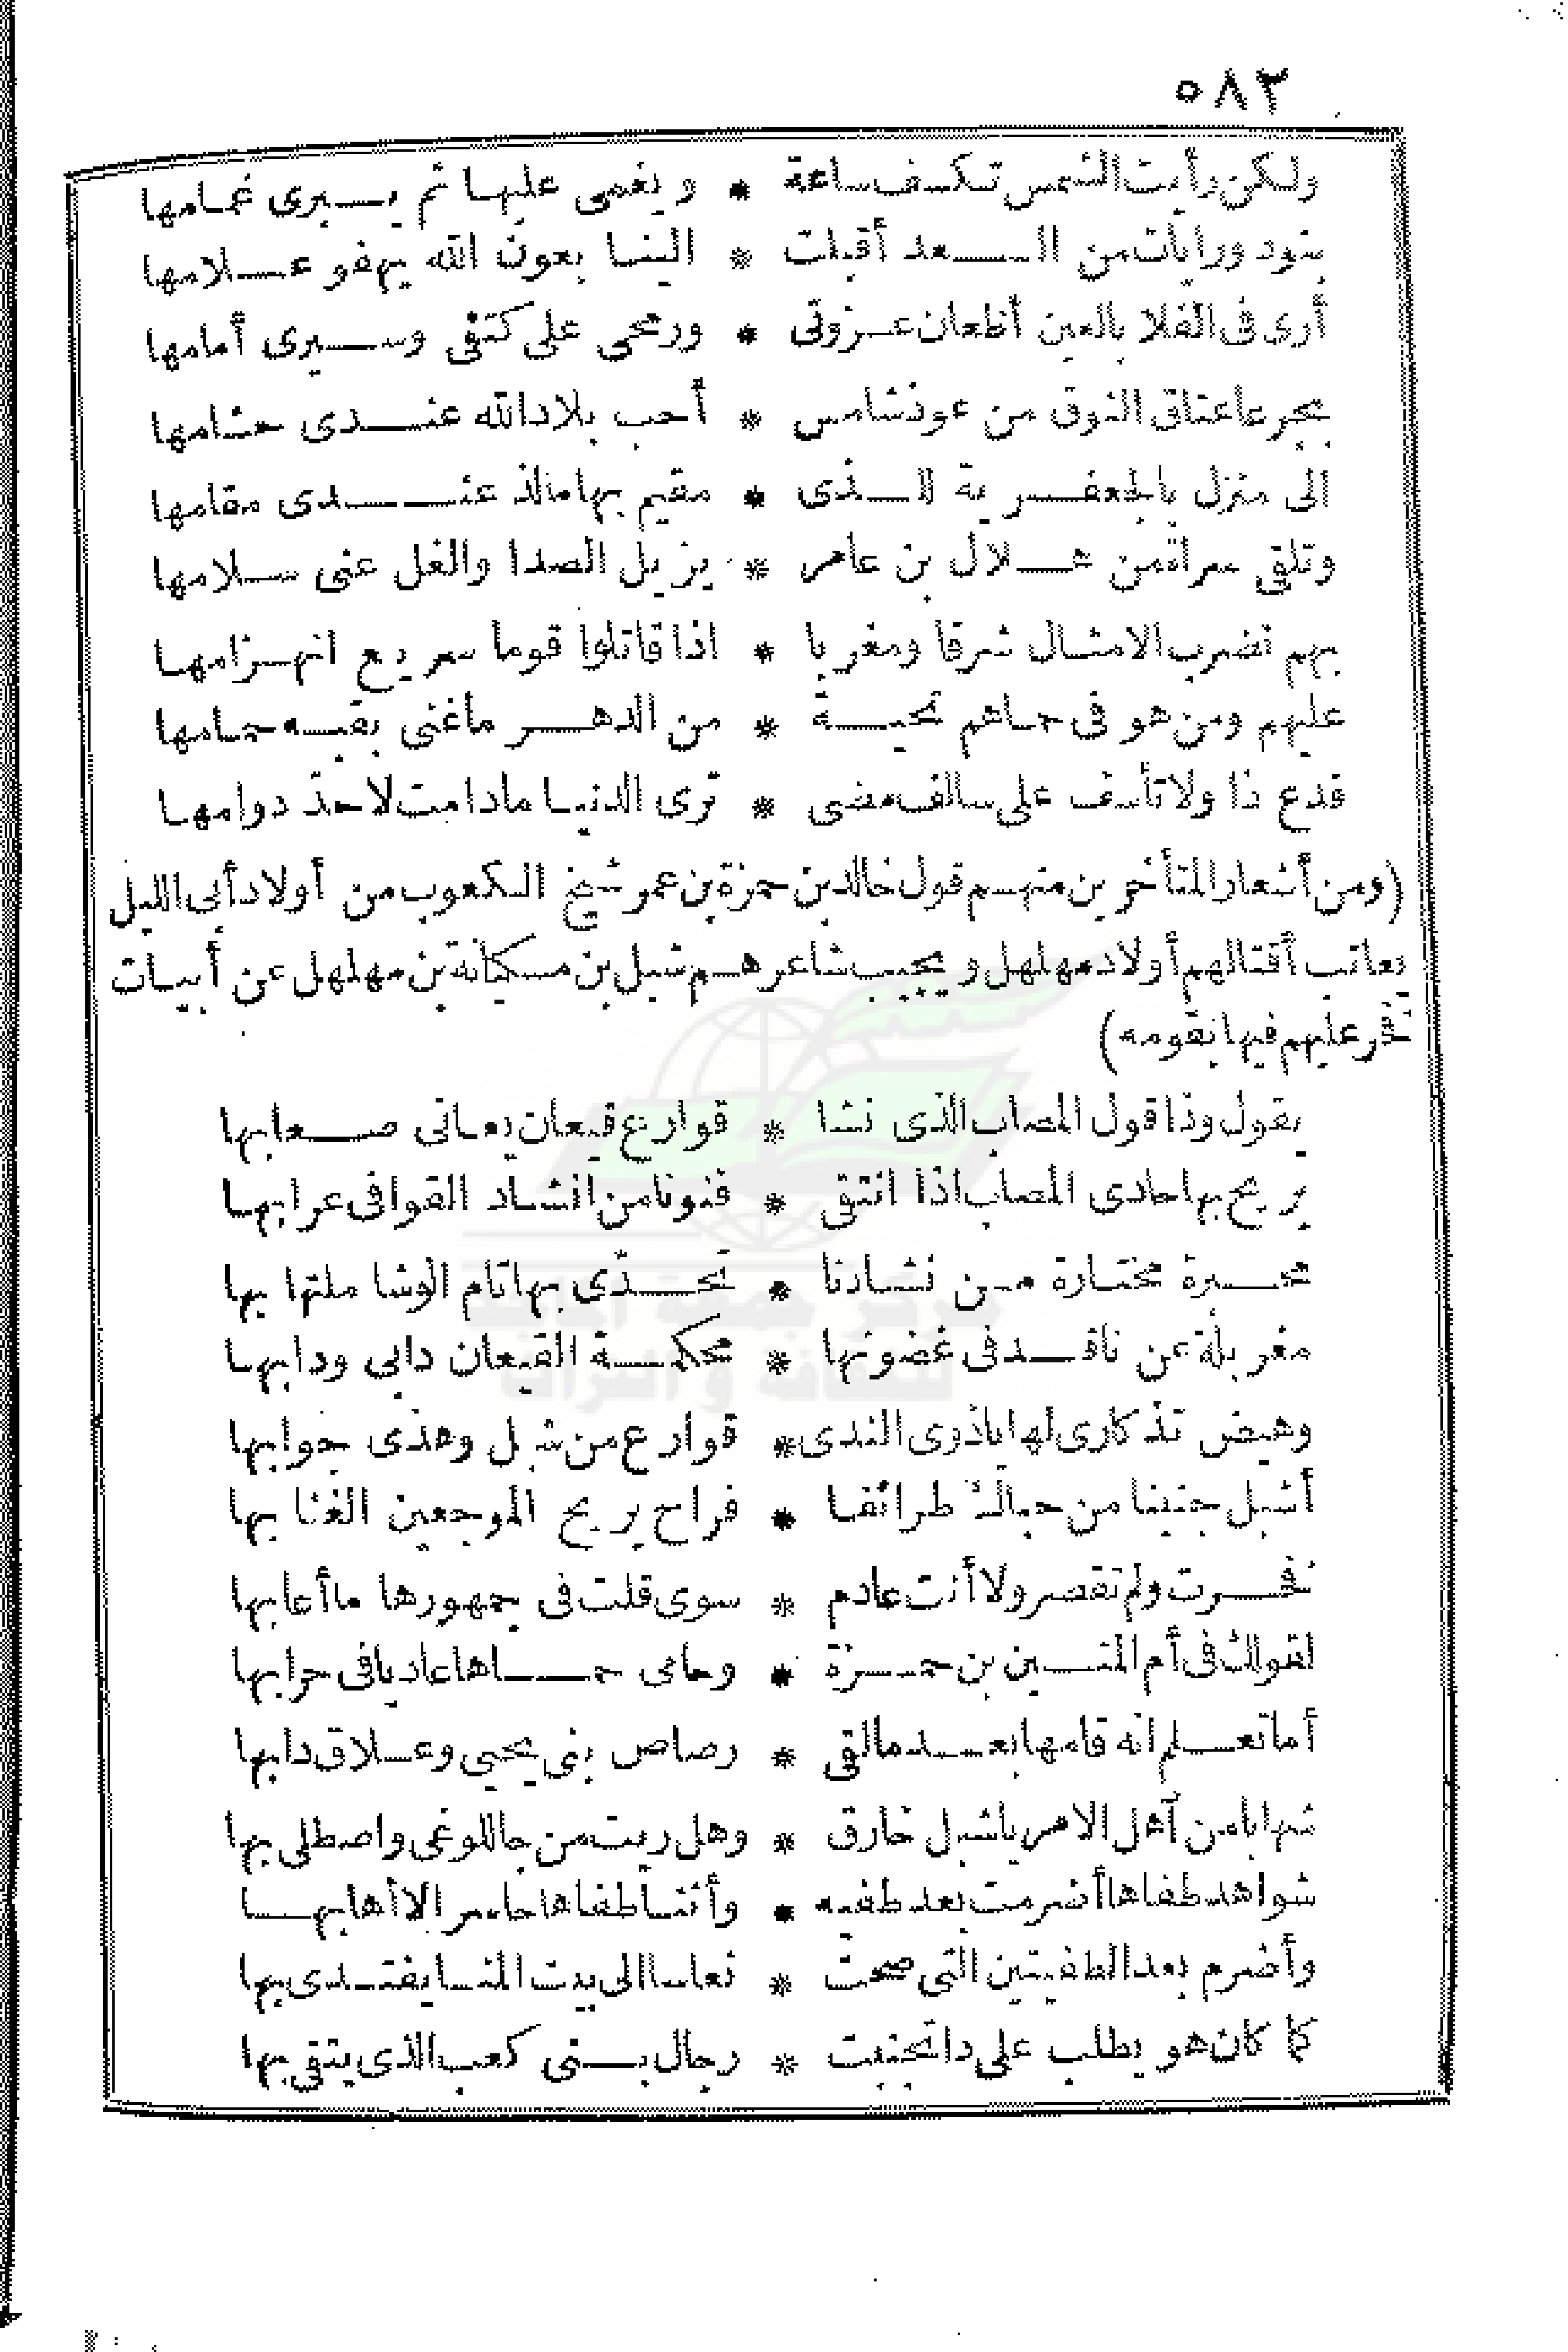 ٥٨٣
ولكن رأيت الشمس تكسف ساعة * ويغمى عليها ثم يبرى غمامها
بنود ورايات من السعد أقبلت * الينا بعون الله يهفو علامها
أرى فى الفلا بالعين أظعان عزوتى * ورمحى على كتفى وسيرى أمامها
بجرعا عتاق النوق من عوذ شامس * أحب بلاد الله عندى حشامها
الى منزل بالجعفرية للذى * مقيم بها مالذ عندى مقامها
وتلقى سراة من هلال بن عامر * يزيل الصدا والغل عنى سلامها
بهم تضرب الامثال شرقا ومغربا * اذا قاتلوا قوما سريع انهزامها
عليهم ومن هو فى حماهم تحية * من الدهر ماغنى بقبه حمامها
فدع ذا ولا تأسف على سالف مضى * ترى الدنيا مادامت لاحد دوامها
(ومن أشعار المتأخرين منهم قول خالد بن حمزة بن عمر شيخ الكعوب من أولاد أبى الليل
يعاتب أقتالهم أولاد مهلهل ويجيب شاعرهم شبل بن مسكيانة بن مهلهل عن أبيات
نفخر عليهم فيها بقومه)
يقول وذا قول المصاب الذى نشا * قوارع قيعان يعانى صعابها
يريح بها حادى المصاب اذا انتقى * فنونا من انشاد القوافى عرابها
محبرة مختارة من نشادنا * تحدّى بها تام الوشا ملتها بها
مغربلة عن ناقد فى غضونها * محكمة القيعان دابى ودابها
وهيض تذكارى لها ياذوى الندى * قوارع من شبل وهذى جوابها
أشبل جنينا من حباك طرائفا * فراح يريح الموجعين الغنا بها
نفرت ولم تقصر ولا أنت عادم * سوى قلت فى جمهورها ما أعابها
لقولك فى أم المتين بن حمزة * وحامى حماها عاديا فى حرابها
أما تعلم انه قامها بعد مالقى * رصاص بنى يحيى وعلاق دابها
شهابا من آهل الامر ياشبل خارق * وهل ريت من جا للوغى واصطلى بها
شواهد طفاها أضرمت بعد طفيه * وأثنا طفاها جاسر الا أهابها
وأضرم بعد الطفيتين التى صحت * نعاسا الى بيت المنا يقتدى بها
كما كان هو يطلب على دا تجنبت * رجال بنى كعب الذى يتقى بها